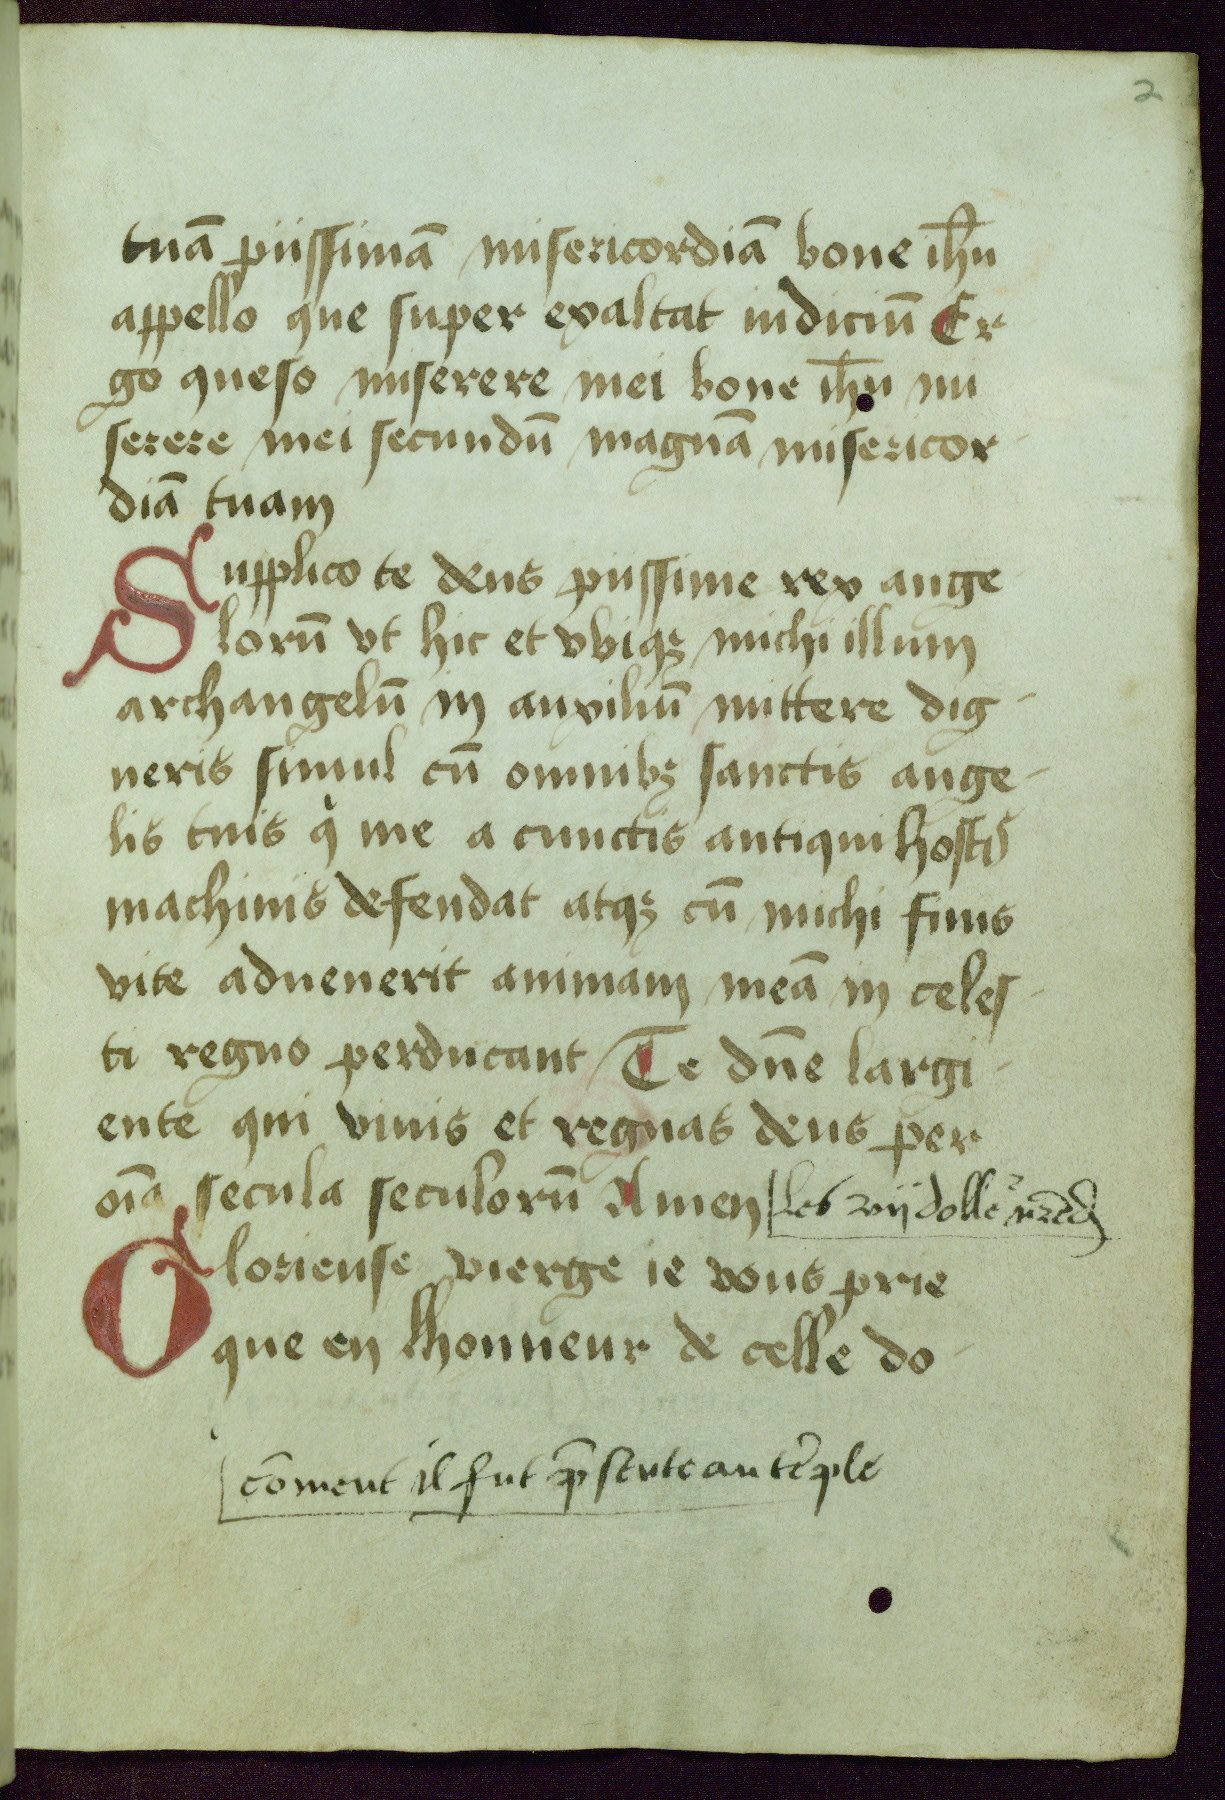 2
tuā piissimā misericordiā bone ihū
appello que super exaltat iudiciū Er
go queso miserere mei bone ihū mi
serere mei secundū magnā misericor-
diā tuam
Supplico te deus piissime rex ange-
lorū vt hic et vbiqꝫ michi illum
archangelū in auxiliū mittere dig-
neris simul cū omnibꝫ sanctis ange-
lis tuis q me a cunctis antiqui hostis
machinis defendat atqꝫ cū michi finis
vite aduenerit animam meā in celes-
ti regno perducant Te dn̄e largi-
ente qui viuis et regnas deus per
oīa secula seculorū Amen Les vij
Glorieuse vierge ie vous prie
que en lhonneur de celle do-
cōment il fut p̄sente au tēple